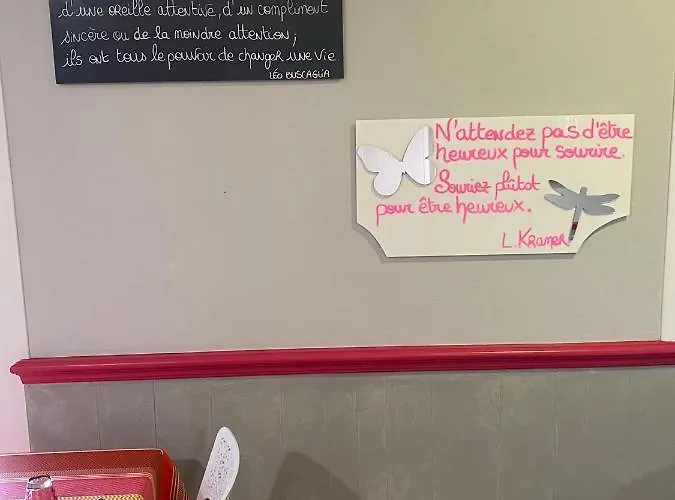 d'une oreille attentive, d'un compliment
sincère ou de la moindre attention ;
ils ont tous le pouvoir de changer une vie
LÉO BUSCAGLIA
N'attendez pas d'être
heureux pour sourire.
Souriez plutôt
pour être heureux.
L. Kramer